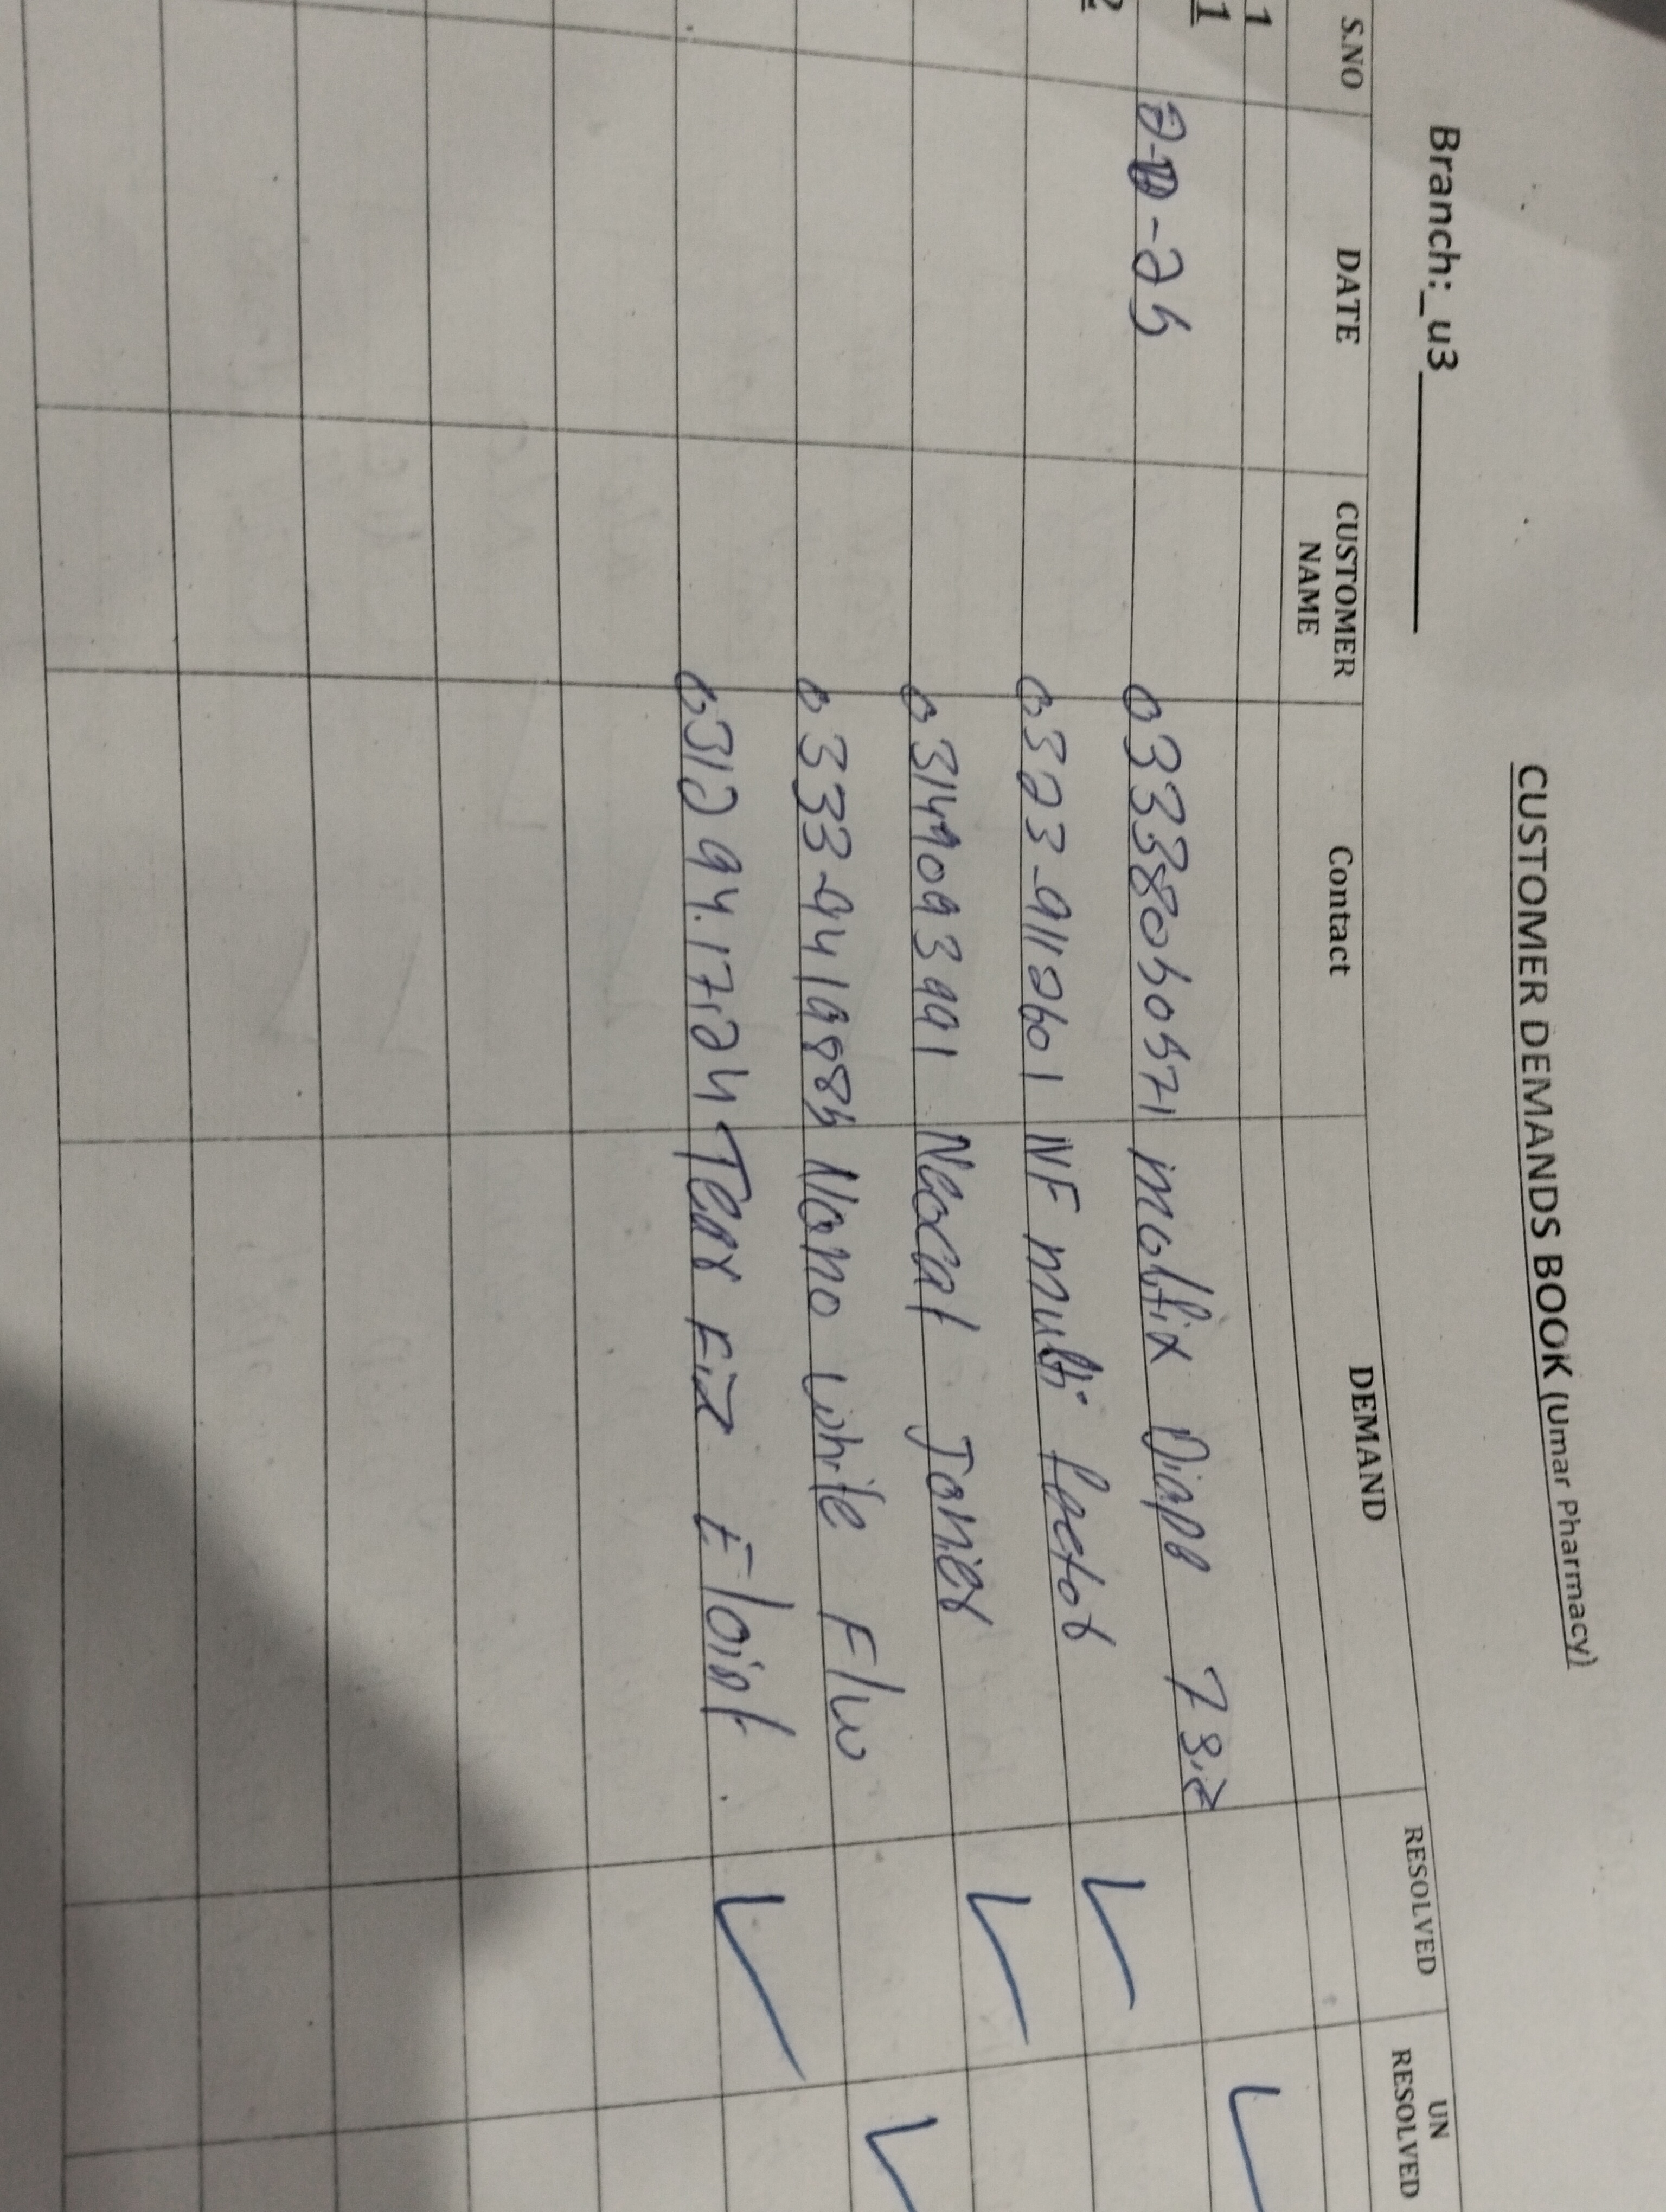 CUSTOMER DEMANDS BOOK (Umar Pharmacy)
Branch:_u3
S.NO DATE CUSTOMER NAME Contact DEMAND RESOLVED UN RESOLVED
1
1 -25 03338050571 molfix Diapr 7 Siz
2 0323-9112601 NF multi factor
03149093991 Neocal Jonier
0333-9419885 Nano white F/w
031294.17.24 Tear Eiz E/oint.